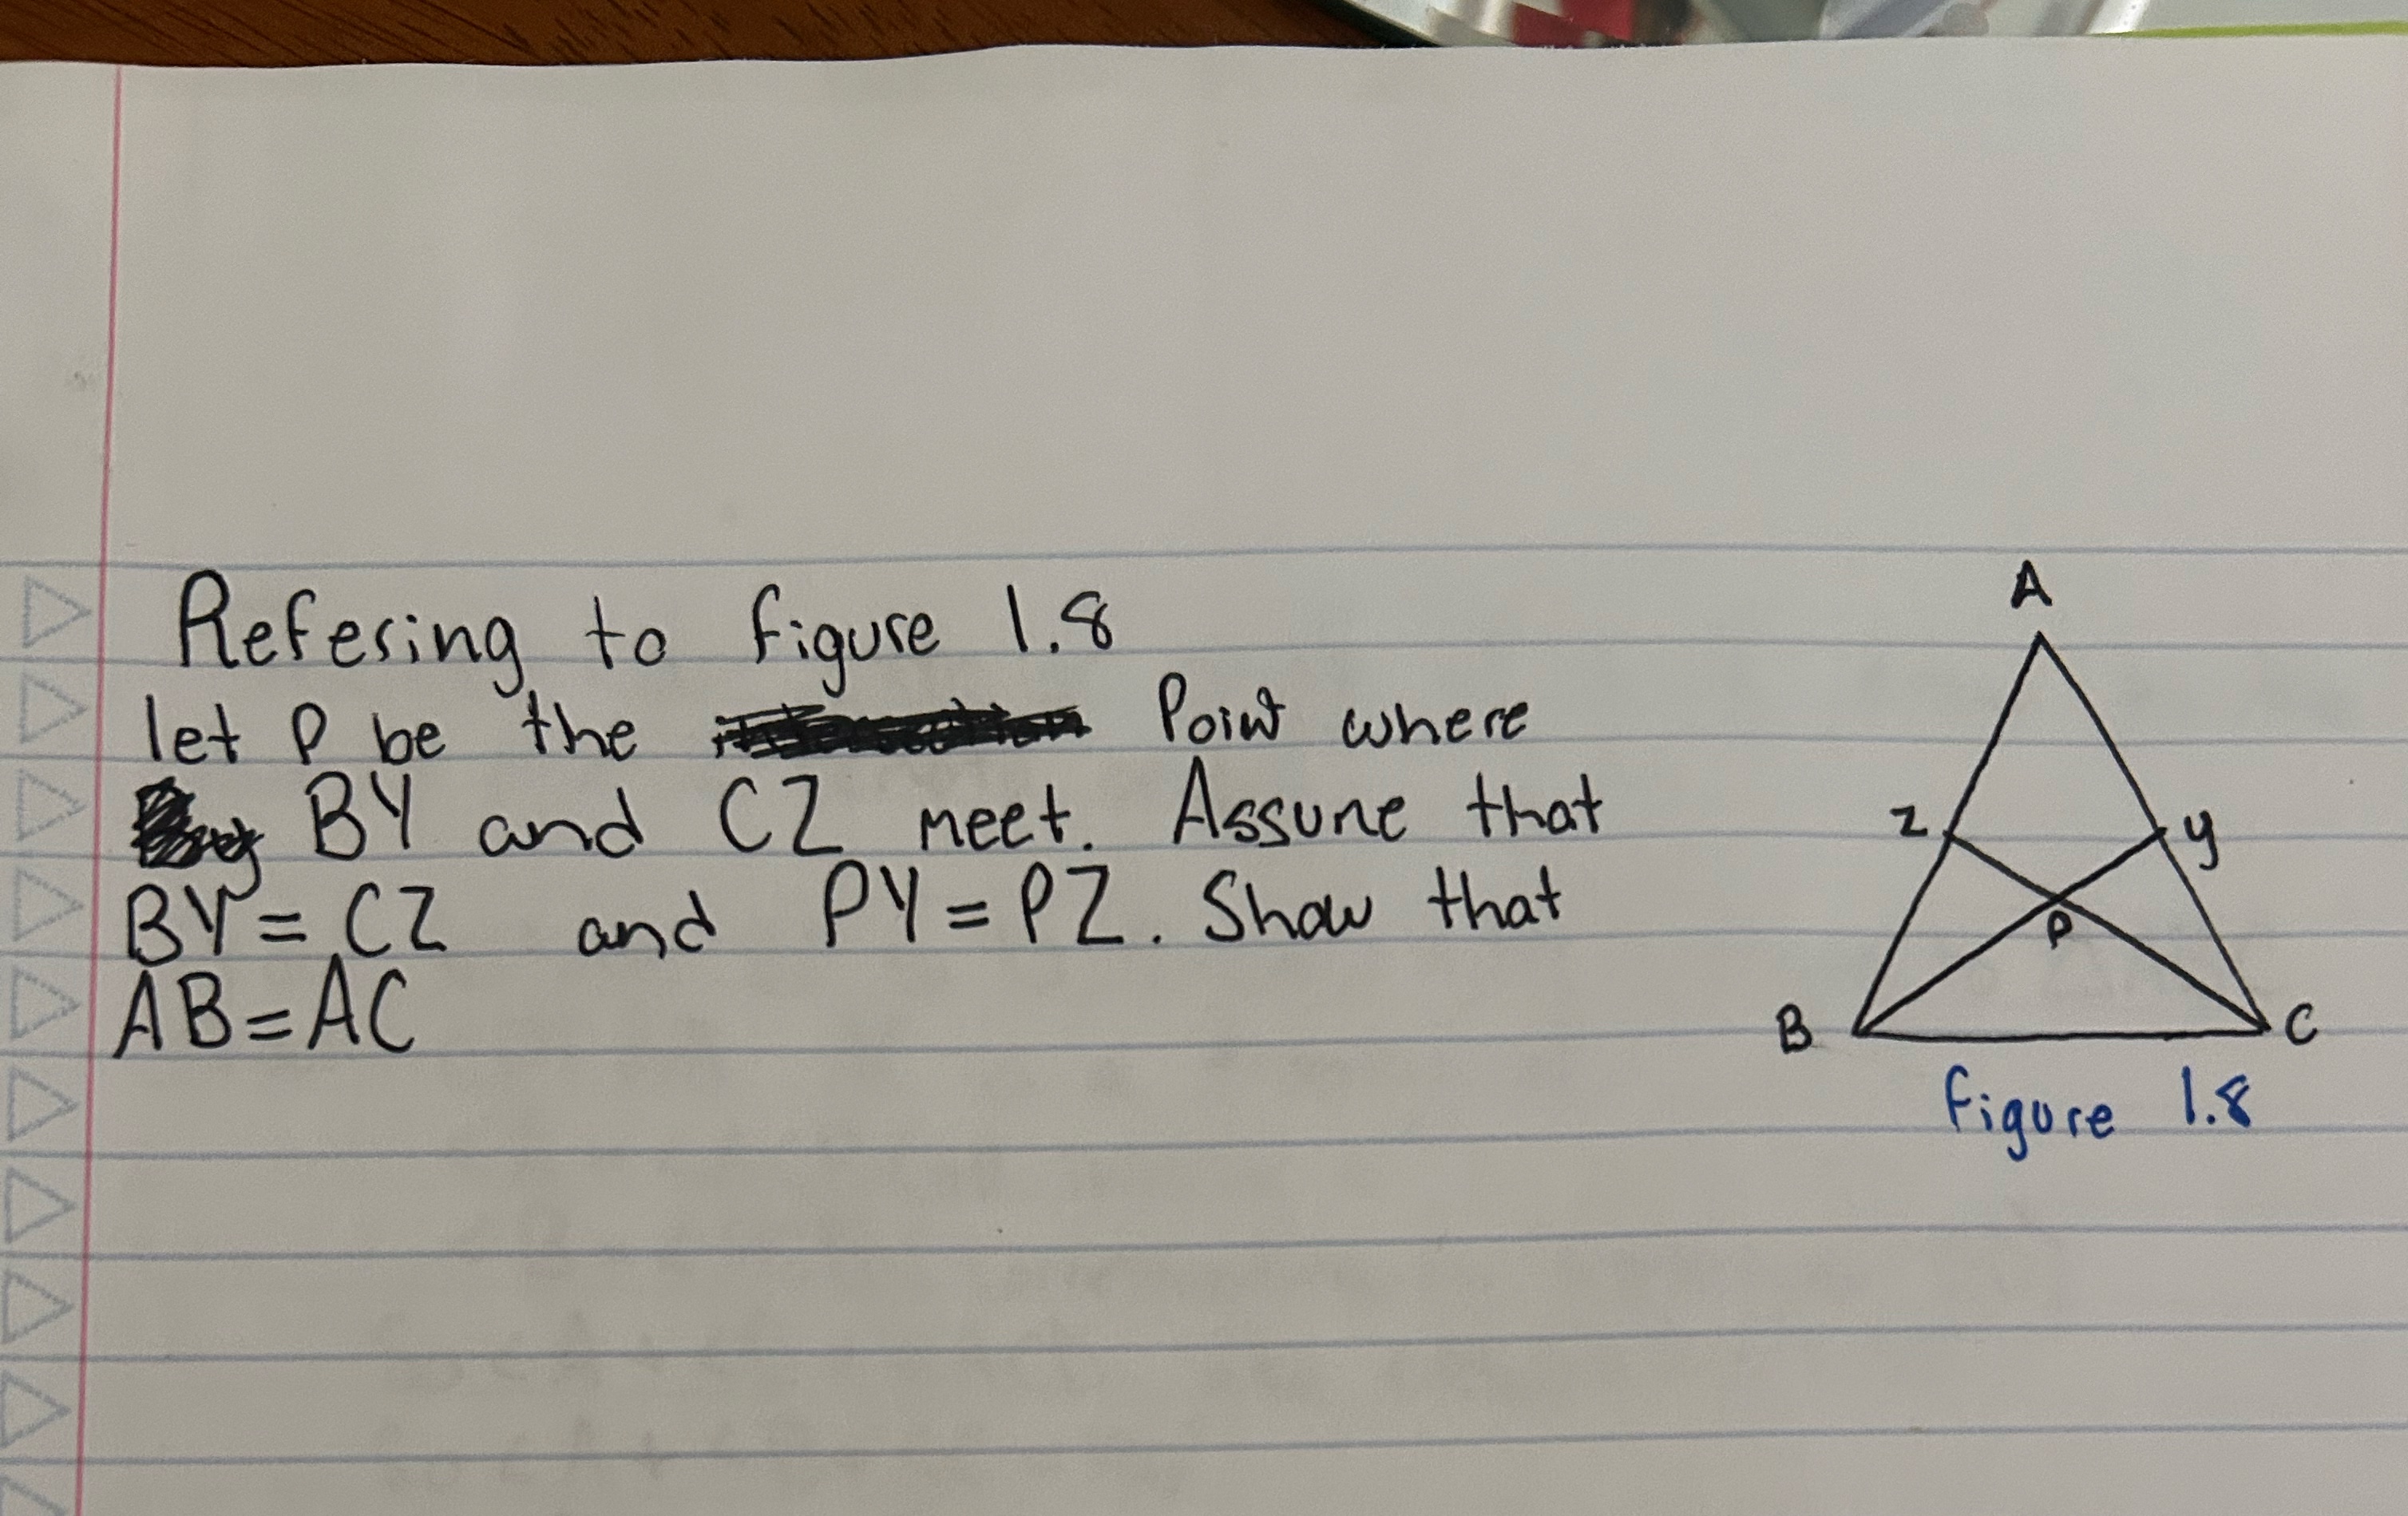 Refesing to figure 1.8
let P be the Point where
BY and CZ meet. Assume that
BY = CZ and PY = PZ. Show that
AB = AC
A
z
y
P
B
C
figure 1.8